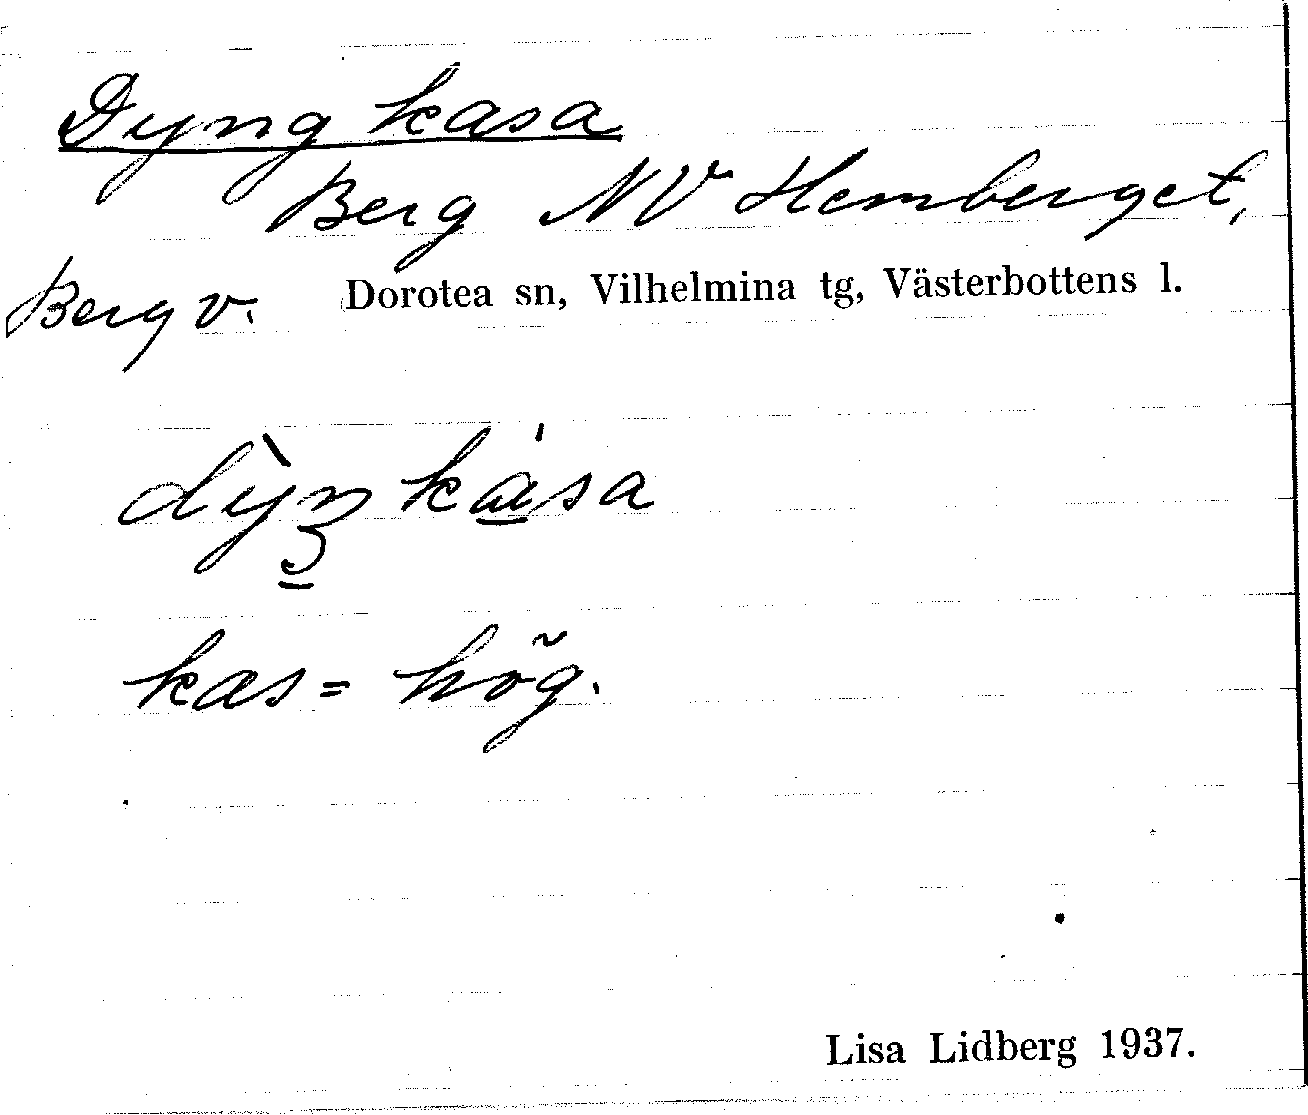 Dyngkasa
Berg NV Hemberget,
Berg v. Dorotea sn, Vilhelmina tg, Västerbottens l.
dỳŋ ká̱sa
kas = hög.
Lisa Lidberg 1937.